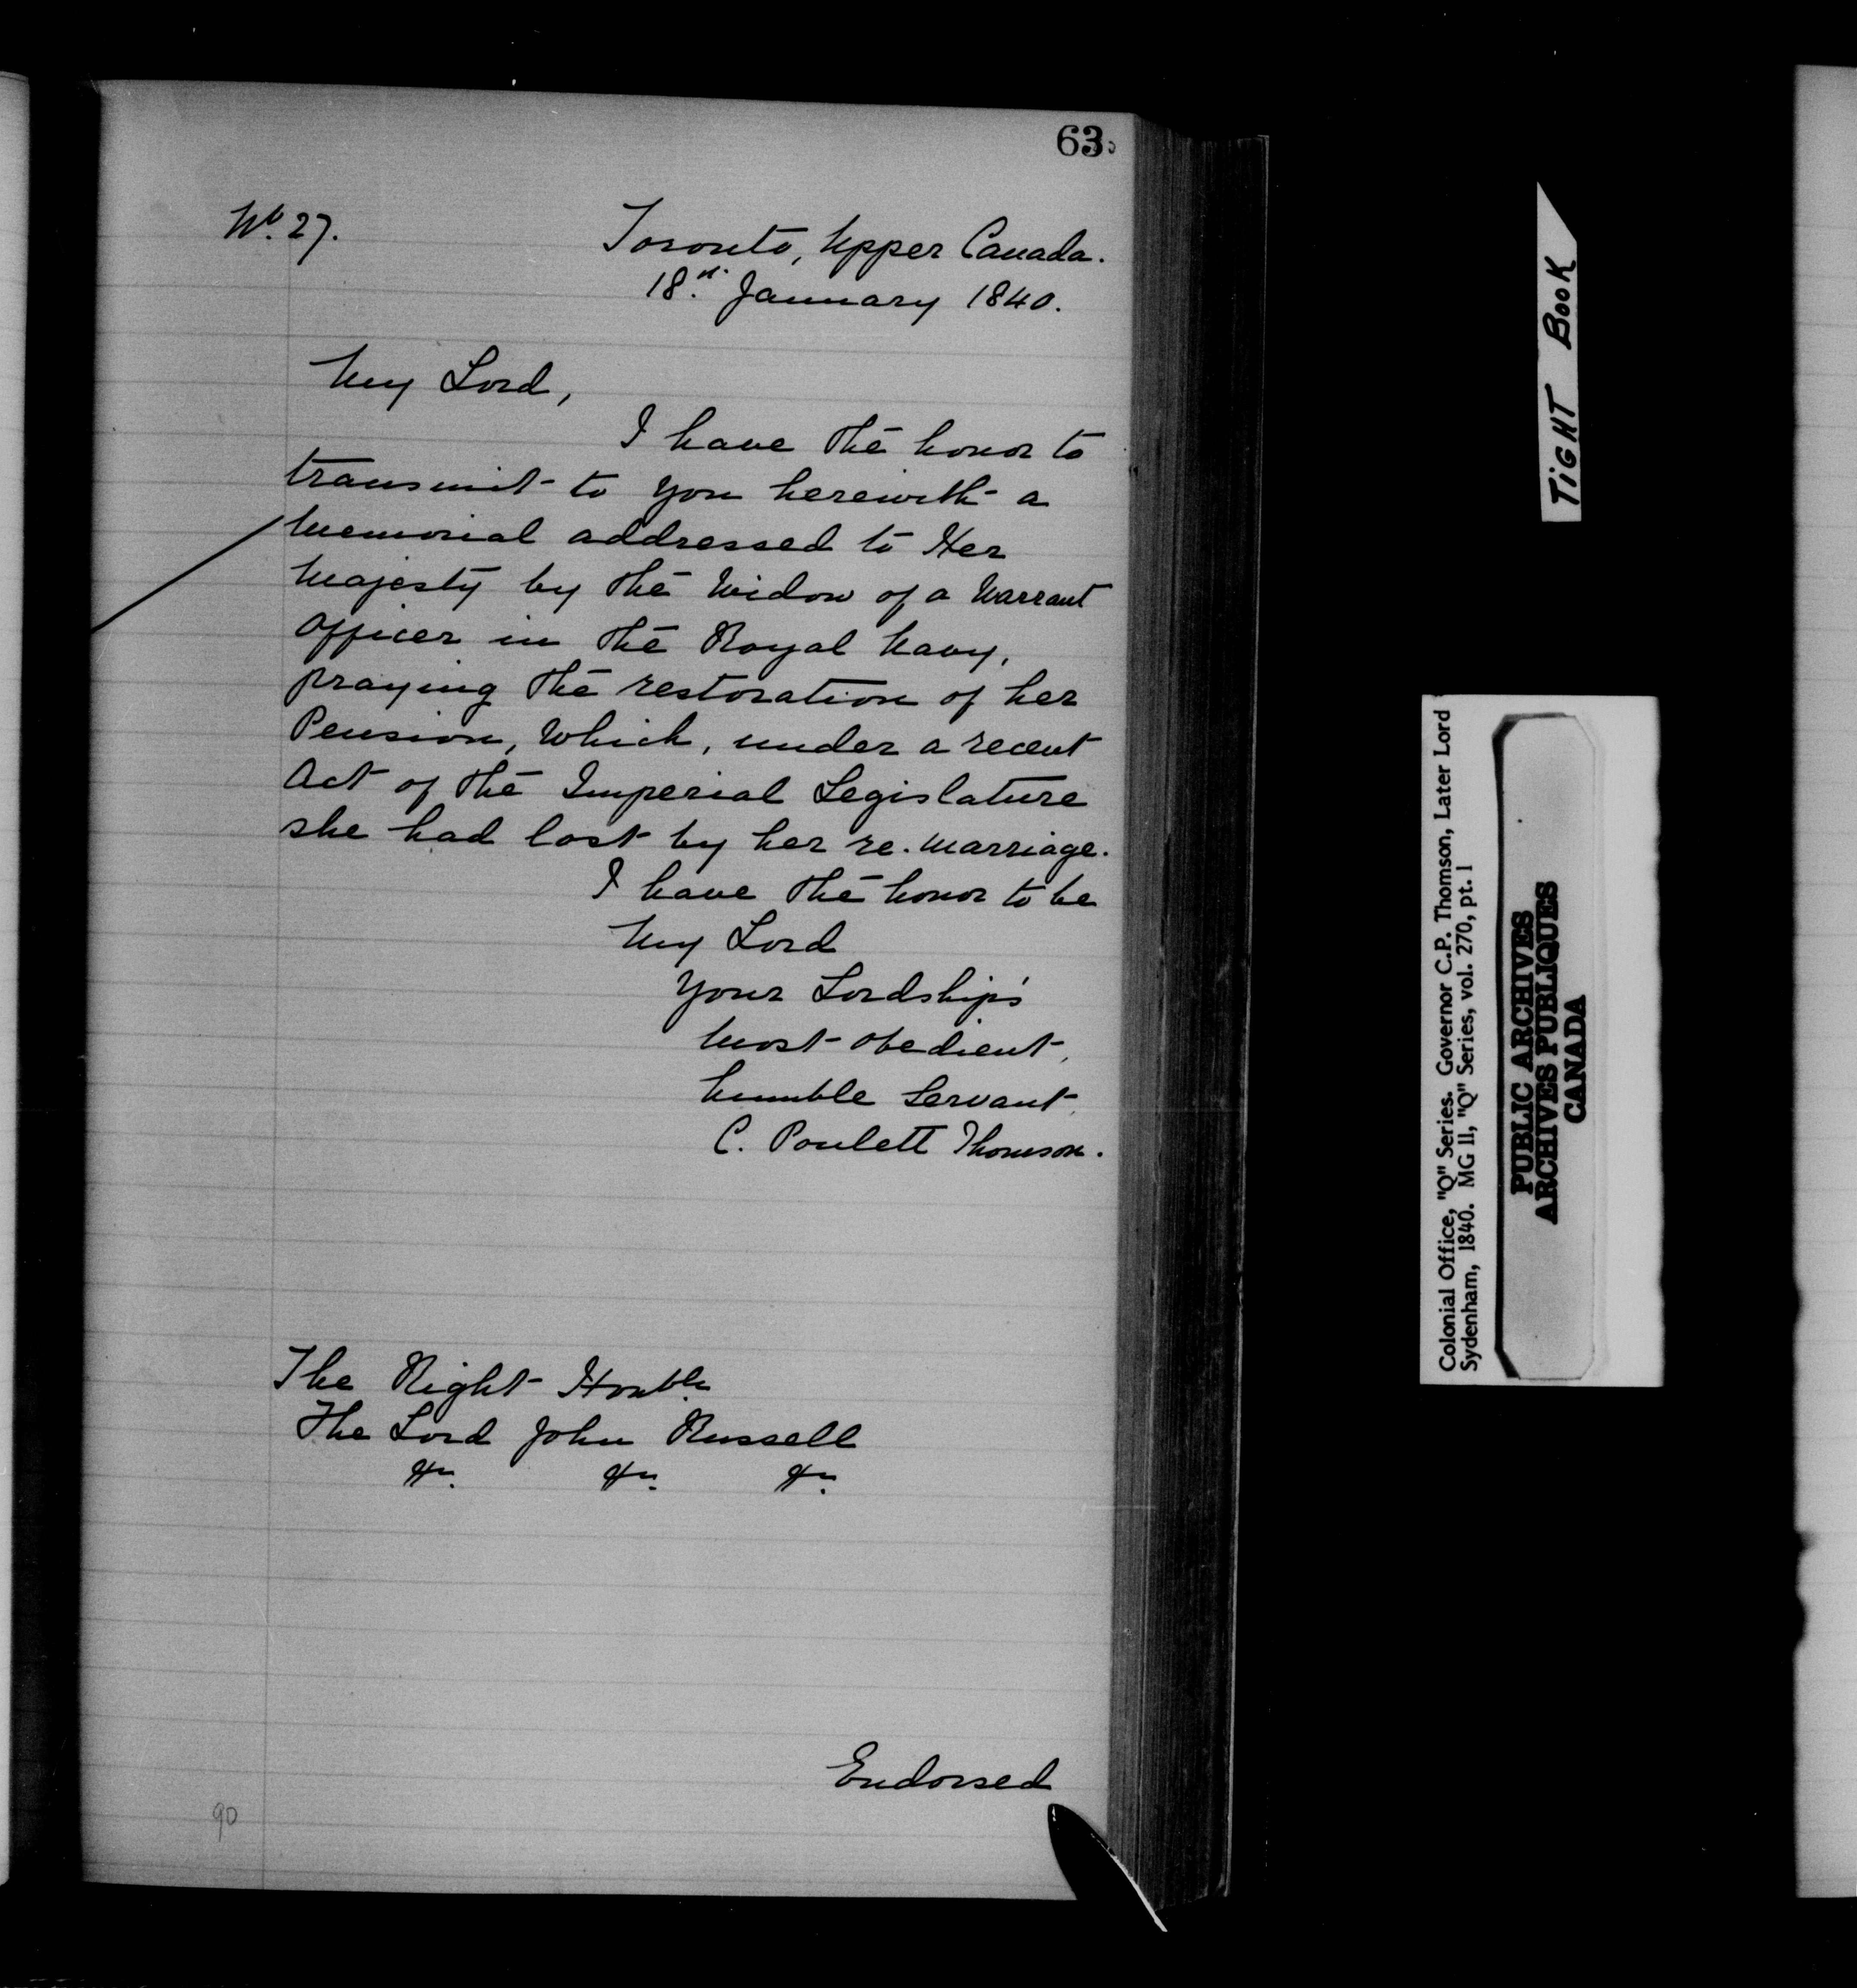 63
No. 27.
Toronto, Upper Canada.
18th January 1840.
My Lord,
I have the honor to
transmit to you herewith a
Memorial addressed to Her
Majesty by the Widow of a Warrant
Officer in the Royal Navy,
praying the restoration of her
Pension, which, under a recent
Act of the Imperial Legislature
she had lost by her re-marriage.
I have the honor to be
My Lord
Your Lordship's
Most obedient,
humble Servant,
C. Poulett Thomson.
The Right Honble
The Lord John Russell
&c. &c. &c.
Endorsed
90
TIGHT BOOK
Colonial Office, "Q" Series. Governor C.P. Thomson, Later Lord
Sydenham, 1840. MG 11, "Q" Series, vol. 270, pt. 1
PUBLIC ARCHIVES
ARCHIVES PUBLIQUES
CANADA